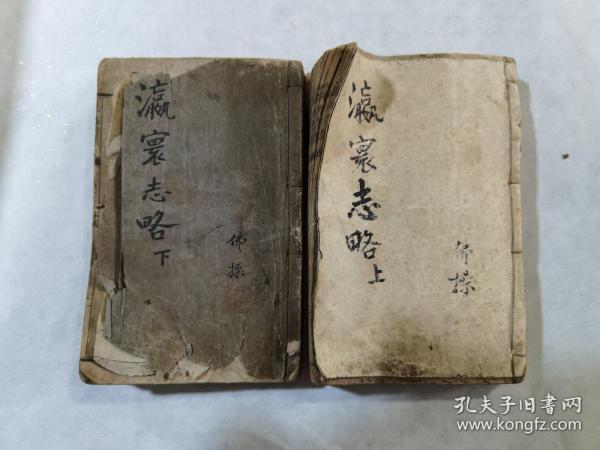 瀛寰志略上
佩操
瀛寰志略下
佩操
孔夫子旧书网
www.kongfz.com